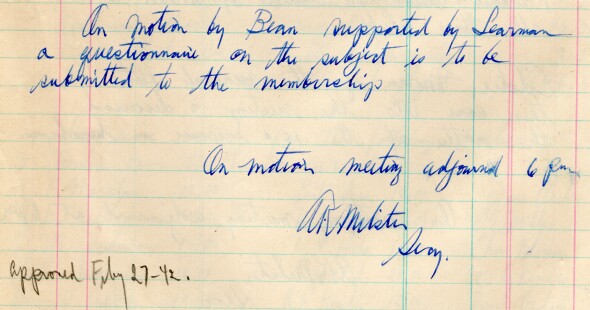 On motion by Bean supported by Learman
a questionnaire on the subject is to be
submitted to the membership
On motion meeting adjourned 6 pm
Secy.
approved Feby 27-42.